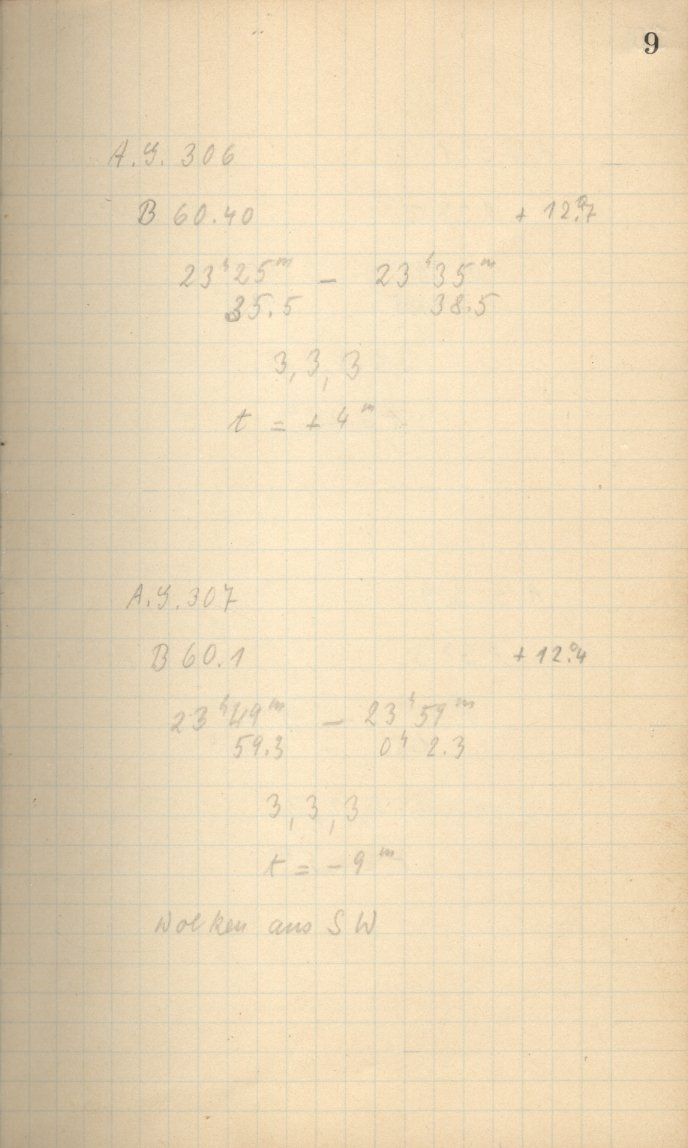 9
A.G. 306
B 60.40 + 12.°7
23ʰ25ᵐ — 23ʰ35ᵐ
35.5 38.5
3, 3, 3
t = + 4ᵐ
A.G. 307
B 60.1 + 12.°4
23ʰ49ᵐ — 23ʰ59ᵐ
59.3 0ʰ 2.3
3, 3, 3
t = – 9ᵐ
Wolken aus SW